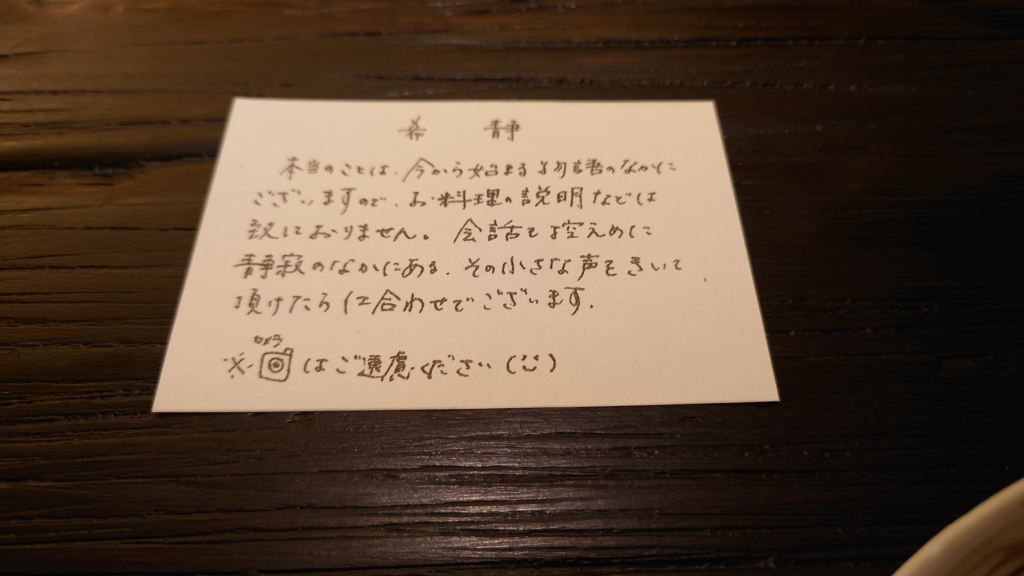 希 静
本当のことは、今から始まる物語のなかに
ございますので、お料理の説明などは
致しておりません。会話も控えめに
静寂のなかにある、その小さな声をきいて
頂けたら仕合わせでございます。
カメラ
※ はご遠慮ください(ü)